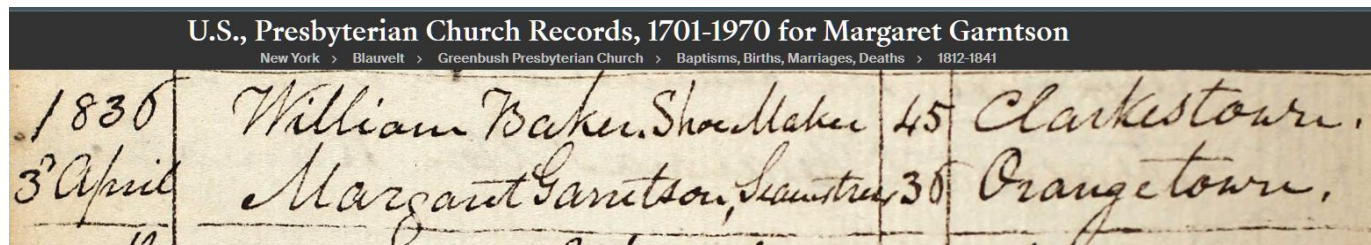 U.S., Presbyterian Church Records, 1701-1970 for Margaret Garntson
New York > Blauvelt > Greenbush Presbyterian Church > Baptisms, Births, Marriages, Deaths > 1812-1841
1836 William Baker. Shoe Maker 45 Clarkestown.
3 April Margaret Garretson, Seamstress 36 Orangetown.